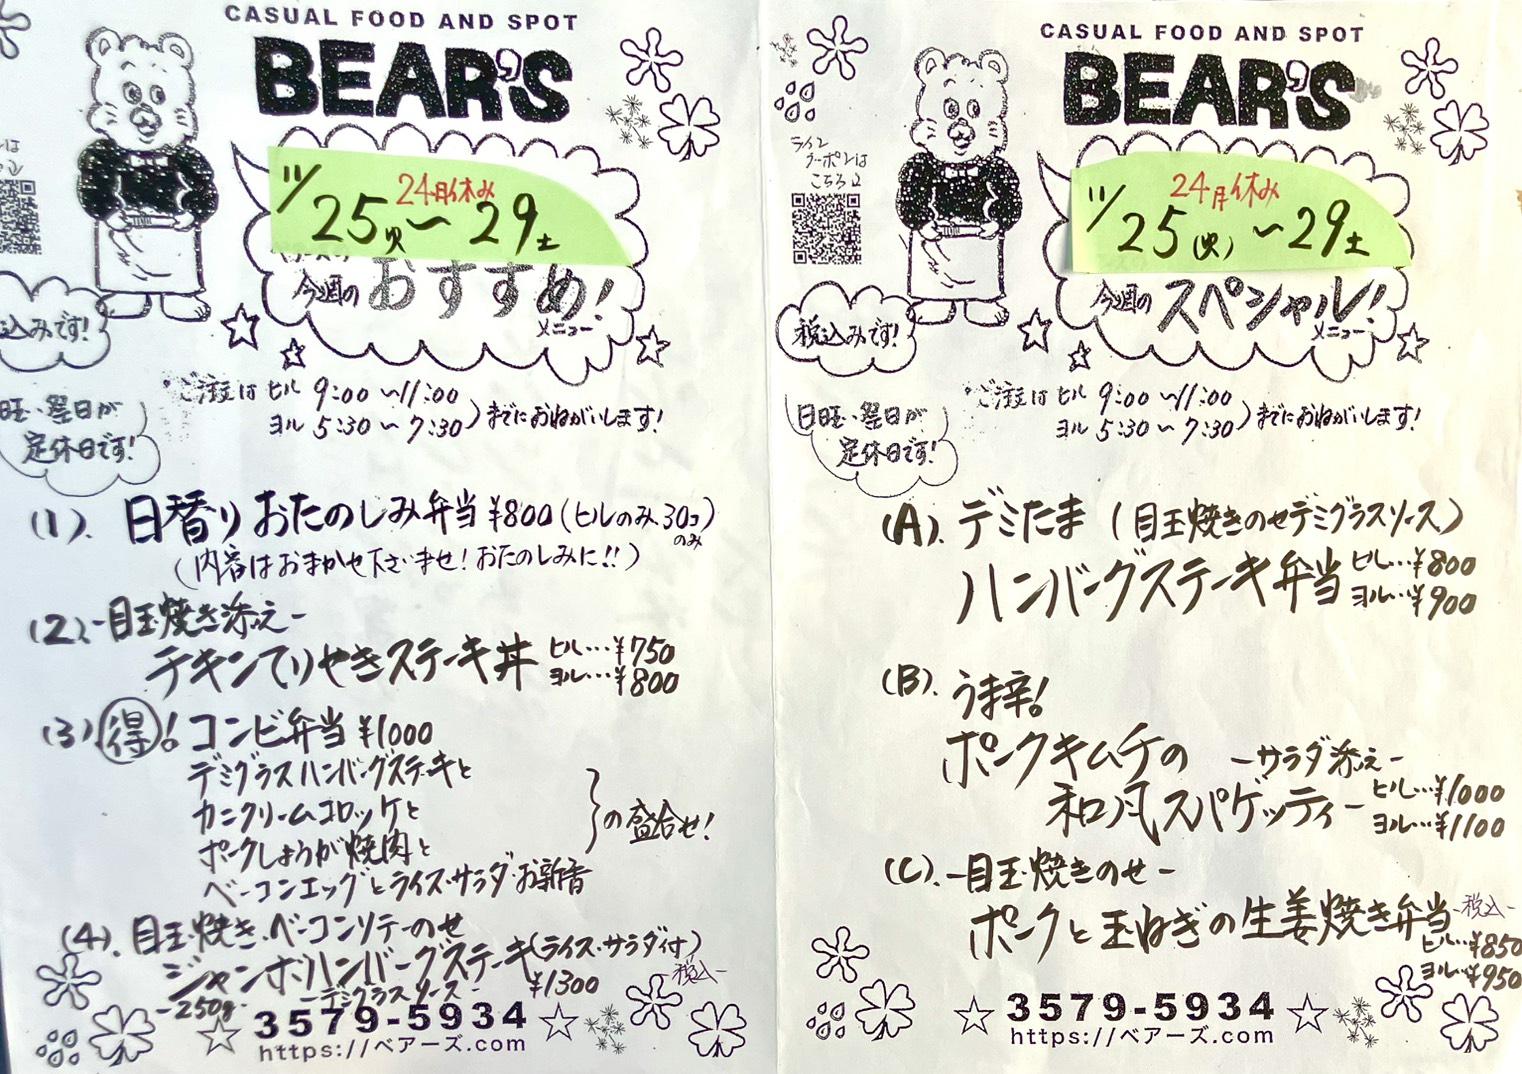 CASUAL FOOD AND SPOT
BEAR'S
24月休み
11/25火〜29土
今週のおすすめ!
メニュー
込みです!
・ご注文は ヒル 9:00〜11:00
ヨル 5:30〜7:30)までにおねがいします!
日曜・翌日が
定休日です!
(1). 日替り おたのしみ弁当 ¥800(ヒルのみ30コ)
のみ
(内容はおまかせ下さいませ!おたのしみに!!)
(2).-目玉焼き添え-
チキンてりやきステーキ丼 ヒル…¥750
ヨル…¥800
(3) 得! コンビ弁当 ¥1000
デミグラスハンバーグステーキと
カニクリームコロッケと
ポークしょうが焼肉と
ベーコンエッグとライス・サラダ・お新香
の盛合せ!
(4). 目玉焼き・ベーコンソテーのせ
ジャンボハンバーグステーキ(ライス・サラダ付)
-250g- -デミグラスソース- ¥1300
-税込-
3579-5934
https://ベアーズ.com
CASUAL FOOD AND SPOT
BEAR'S
ライン
クーポンは
こちら↓
24月休み
11/25(火)〜29土
今週のスペシャル!
メニュー
税込みです!
・ご注文は ヒル 9:00〜11:00
ヨル 5:30〜7:30)までにおねがいします!
日曜・翌日が
定休日です!
(A). デミたま (目玉焼きのせデミグラスソース)
ハンバーグステーキ弁当 ヒル…¥800
ヨル…¥900
(B). うま辛!
ポークキムチの -サラダ添え-
和風スパゲッティー ヒル…¥1000
ヨル…¥1100
(C). -目玉焼きのせ-
ポークと玉ねぎの生姜焼き弁当 -税込-
ヒル…¥850
ヨル…¥950
3579-5934
https://ベアーズ.com